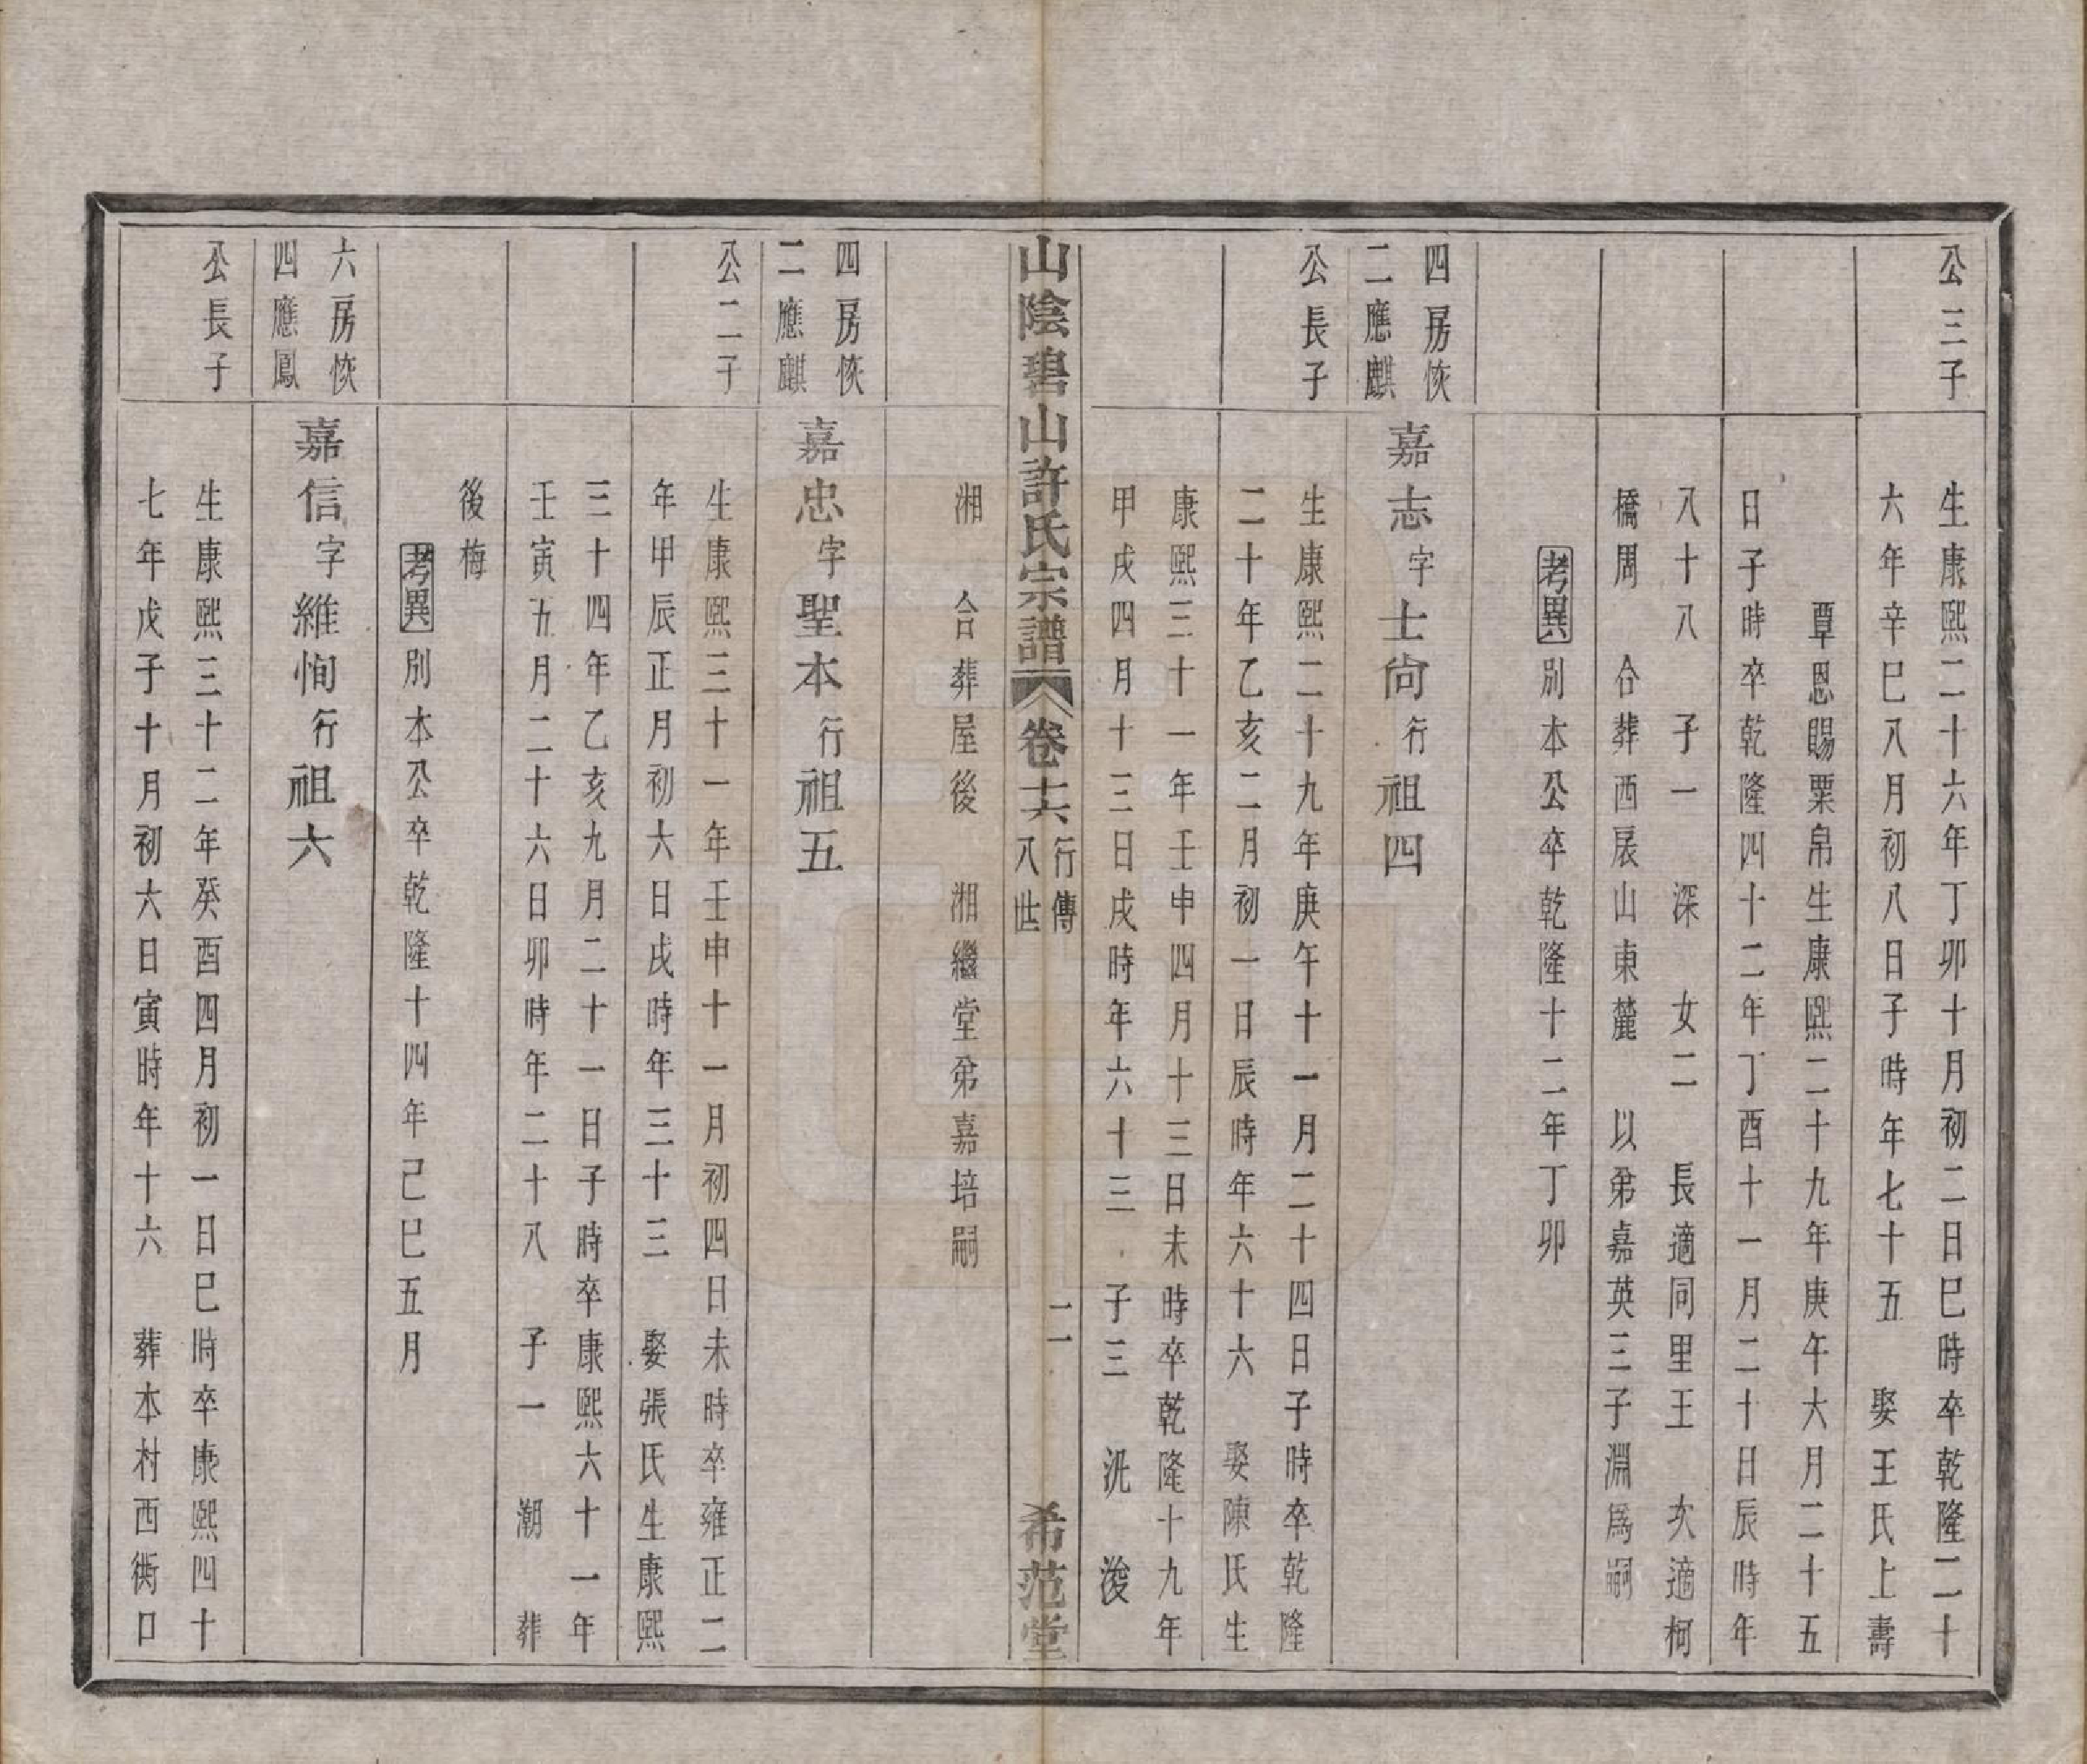 公三子
生康熙二十六年丁卯十月初二日巳時卒乾隆二十
六年辛巳八月初八日子時年七十五　娶王氏上壽
覃恩賜粟帛生康熙二十九年庚午六月二十五
日子時卒乾隆四十二年丁酉十一月二十日辰時年
八十八　子一　深　女二　長適同里王　次適柯
橋周　合葬西扆山東麓　以弟嘉英三子淵為嗣
考異　別本公卒乾隆十二年丁卯
四房恢
二應麒
嘉志字士尙行祖四
公長子
生康熙二十九年庚午十一月二十四日子時卒乾隆
二十年乙亥二月初一日辰時年六十六　娶陳氏生
康熙三十一年壬申四月十三日未時卒乾隆十九年
甲戌四月十三日戌時年六十三　子三　沇　浚
湘　合葬屋後　湘繼堂弟嘉培嗣
山陰碧山許氏宗譜　卷十六　行傳
八世　二　希范堂
四房恢
二應麒
嘉忠字聖本行祖五
公二子
生康熙三十一年壬申十一月初四日未時卒雍正二
年甲辰正月初六日戌時年三十三　娶張氏生康熙
三十四年乙亥九月二十一日子時卒康熙六十一年
壬寅五月二十六日卯時年二十八　子一　潮　葬
後梅
考異　別本公卒乾隆十四年己巳五月
六房恢
四應鳳
嘉信字維恂行祖六
公長子
生康熙三十二年癸酉四月初一日巳時卒康熙四十
七年戊子十月初六日寅時年十六　葬本村西衖口